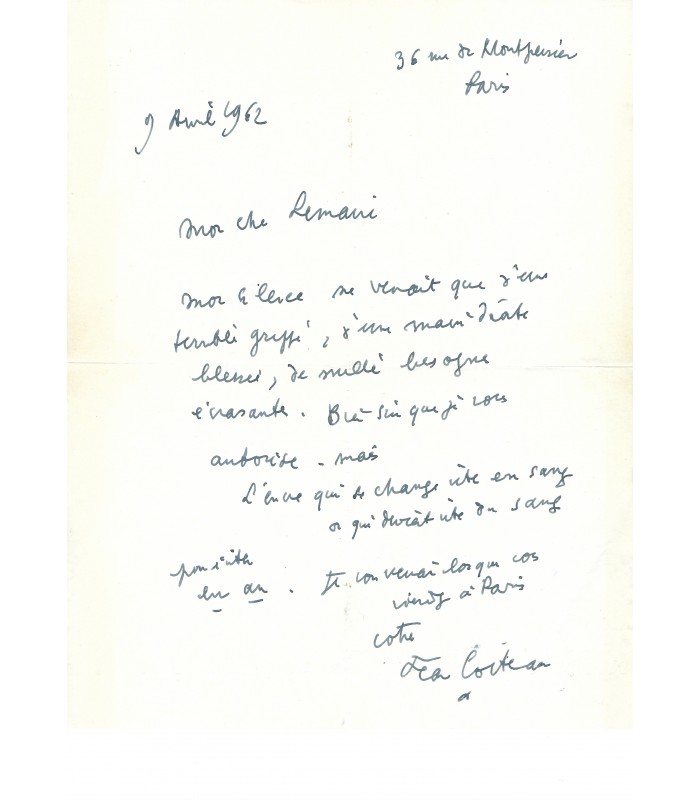 36 rue de Montpensier
Paris
9 Avril 1962
Mon cher Lemarié
Mon silence ne venait que d'une
terrible grippe, d'une main droite
blessée, de mille besogne
écrasante. Bien sûr que je vous
autorise - mais
L'encre qui se change vite en sang
ou qui devient vite du sang
pour éviter
en an. Je vous verrai lorsque vous
viendrez à Paris
votre
Jean Cocteau